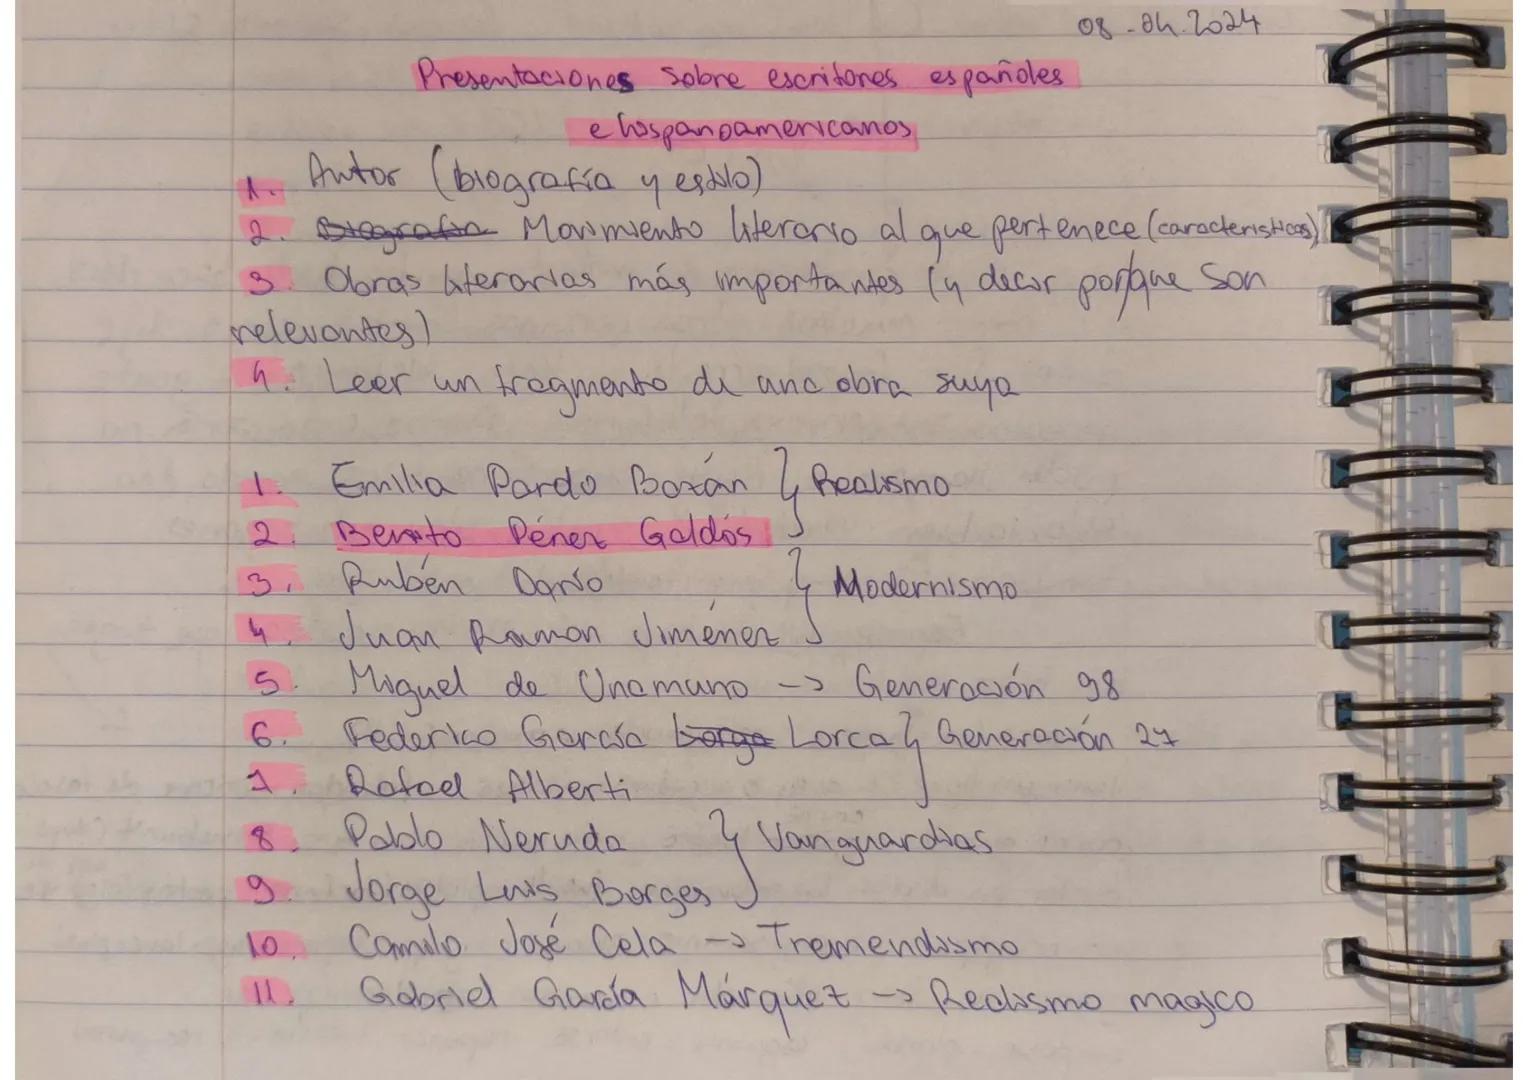 08-04-2024
Presentaciones sobre escritores españoles
e hispanoamericanos
1. Autor (biografía y estilo)
2. Biografía Movimiento literario al que pertenece (características)
3. Obras literarias más importantes (y decir porque son
relevantes)
4. Leer un fragmento de una obra suya
1. Emilia Pardo Bazán } Realismo
2. Benito Pérez Galdós
3. Rubén Darío } Modernismo
4. Juan Ramon Jiménez
5. Miguel de Unamuno -> Generación 98
6. Federico García Lorga Lorca } Generación 27
7. Rafael Alberti
8. Pablo Neruda } Vanguardias
9. Jorge Luis Borges
10. Camilo José Cela -> Tremendismo
11. Gabriel García Márquez -> Realismo magico